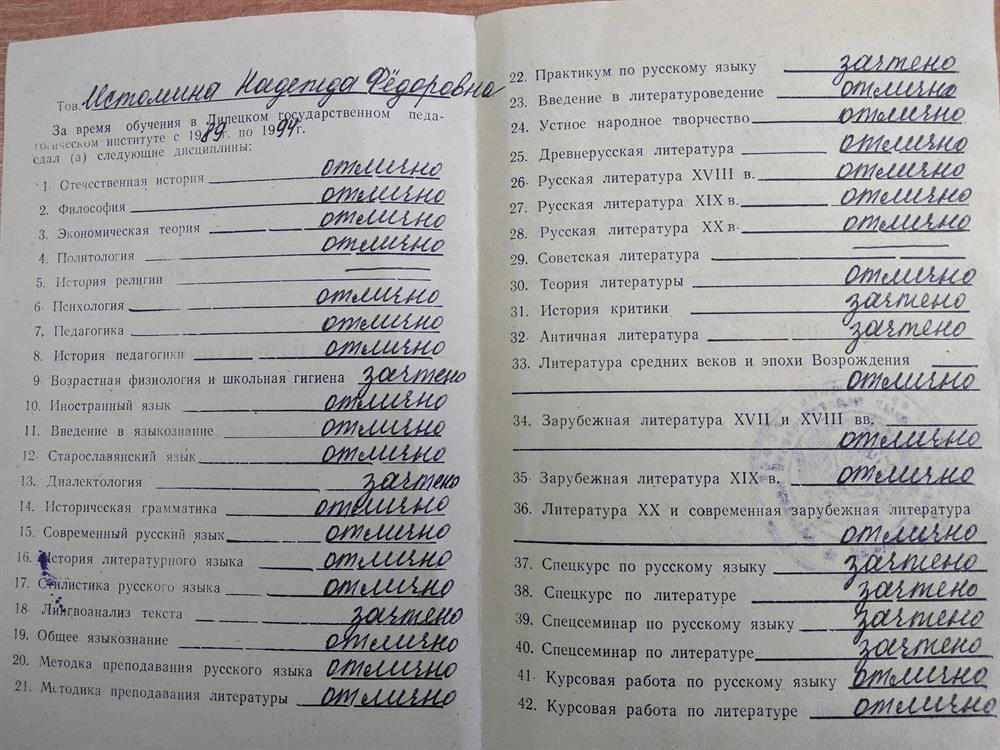 Тов. Истомина Надежда Фёдоровна
За время обучения в Липецком государственном педа-
гогическом институте с 1989г. по 1994г.
сдал (а) следующие дисциплины:
1. Отечественная история отлично
2. Философия отлично
3. Экономическая теория отлично
4. Политология отлично
5. История религии
6. Психология отлично
7. Педагогика отлично
8. История педагогики отлично
9. Возрастная физиология и школьная гигиена зачтено
10. Иностранный язык отлично
11. Введение в языкознание отлично
12. Старославянский язык отлично
13. Диалектология зачтено
14. Историческая грамматика отлично
15. Современный русский язык отлично
16. История литературного языка отлично
17. Стилистика русского языка отлично
18. Лингвоанализ текста зачтено
19. Общее языкознание отлично
20. Методка преподавания русского языка отлично
21. Методика преподавания литературы отлично
22. Практикум по русскому языку зачтено
23. Введение в литературоведение отлично
24. Устное народное творчество отлично
25. Древнерусская литература отлично
26. Русская литература XVIII в. отлично
27. Русская литература XIX в. отлично
28. Русская литература XX в. отлично
29. Советская литература
30. Теория литературы отлично
31. История критики зачтено
32. Античная литература зачтено
33. Литература средних веков и эпохи Возрождения
отлично
34. Зарубежная литература XVII и XVIII вв.
отлично
35. Зарубежная литература XIX в. отлично
36. Литература XX и современная зарубежная литература
отлично
37. Спецкурс по русскому языку зачтено
38. Спецкурс по литературе зачтено
39. Спецсеминар по русскому языку зачтено
40. Спецсеминар по литературе зачтено
41. Курсовая работа по русскому языку отлично
42. Курсовая работа по литературе отлично